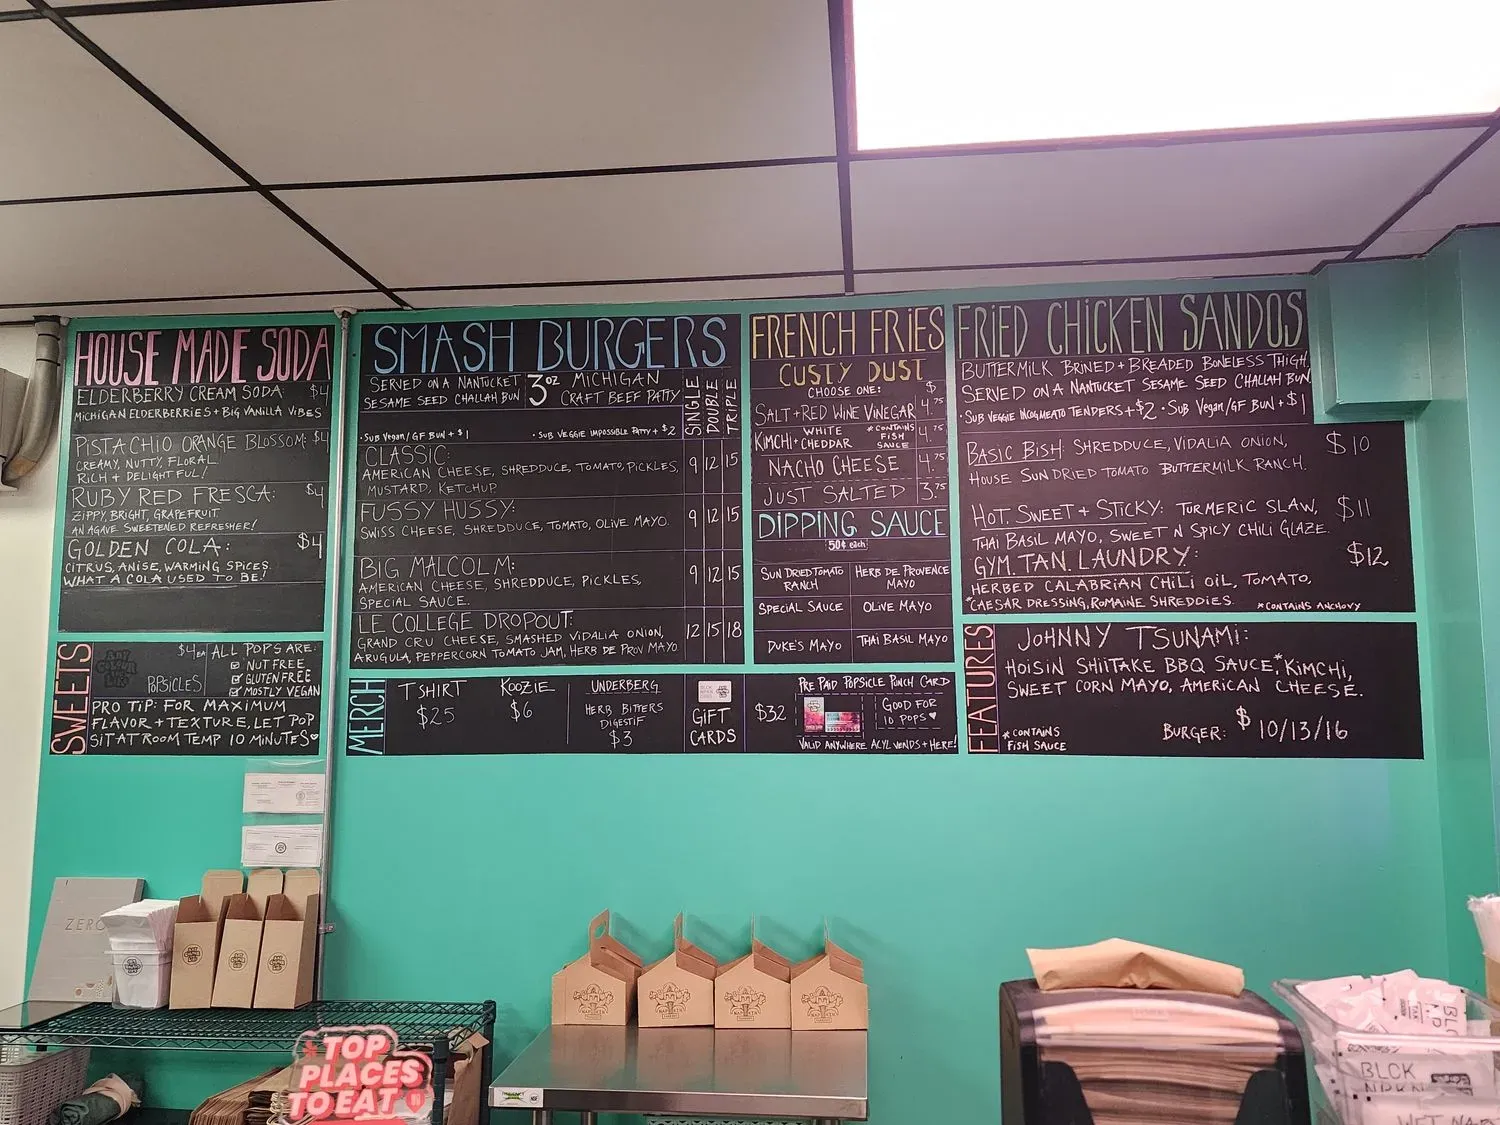 HOUSE MADE SODA
ELDERBERRY CREAM SODA: $4
MICHIGAN ELDERBERRIES + BIG VANILLA VIBES
PISTACHIO ORANGE BLOSSOM: $4
CREAMY, NUTTY, FLORAL.
RICH + DELIGHTFUL!
RUBY RED FRESCA: $4
ZIPPY, BRIGHT, GRAPEFRUIT.
AN AGAVE SWEETENED REFRESHER!
GOLDEN COLA: $4
CITRUS, ANISE, WARMING SPICES.
WHAT A COLA USED TO BE!
SWEETS
$4 EA
POPSICLES
ALL POPS ARE:
NUT FREE
GLUTEN FREE
MOSTLY VEGAN
PRO TIP: FOR MAXIMUM
FLAVOR + TEXTURE, LET POP
SIT AT ROOM TEMP 10 MINUTES
SMASH BURGERS
SERVED ON A NANTUCKET
SESAME SEED CHALLAH BUN
3oz MICHIGAN
CRAFT BEEF PATTY
• SUB VEGAN/GF BUN + $1
• SUB VEGGIE IMPOSSIBLE PATTY + $2
SINGLE
DOUBLE
TRIPLE
CLASSIC: 9 12 15
AMERICAN CHEESE, SHREDDUCE, TOMATO, PICKLES,
MUSTARD, KETCHUP.
FUSSY HUSSY: 9 12 15
SWISS CHEESE, SHREDDUCE, TOMATO, OLIVE MAYO.
BIG MALCOLM: 9 12 15
AMERICAN CHEESE, SHREDDUCE, PICKLES,
SPECIAL SAUCE.
LE COLLEGE DROPOUT: 12 15 18
GRAND CRU CHEESE, SMASHED VIDALIA ONION,
ARUGULA, PEPPERCORN TOMATO JAM, HERB DE PROV MAYO
MERCH
T SHIRT
$25
KOOZIE
$6
UNDERBERG
HERB BITTERS
DIGESTIF
$3
GIFT
CARDS
$32
PRE PAID POPSICLE PUNCH CARD
GOOD FOR
10 POPS
VALID ANYWHERE ACYL VENDS + HERE!
FRENCH FRIES
CUSTY DUST
CHOOSE ONE: $
SALT + RED WINE VINEGAR 4.75
KIMCHI + WHITE CHEDDAR *CONTAINS FISH SAUCE 4.75
NACHO CHEESE 4.75
JUST SALTED 3.75
DIPPING SAUCE
50¢ each
SUN DRIED TOMATO
RANCH
HERB DE PROVENCE
MAYO
SPECIAL SAUCE
OLIVE MAYO
DUKE'S MAYO
THAI BASIL MAYO
FRIED CHICKEN SANDOS
BUTTERMILK BRINED + BREADED BONELESS THIGH,
SERVED ON A NANTUCKET SESAME SEED CHALLAH BUN.
• SUB VEGGIE INCOGMEATO TENDERS + $2 • SUB VEGAN/GF BUN + $1
BASIC BISH: SHREDDUCE, VIDALIA ONION, $10
HOUSE SUN DRIED TOMATO BUTTERMILK RANCH.
HOT, SWEET + STICKY: TURMERIC SLAW, $11
THAI BASIL MAYO, SWEET N SPICY CHILI GLAZE.
GYM. TAN. LAUNDRY: $12
HERBED CALABRIAN CHILI OIL, TOMATO,
*CAESAR DRESSING, ROMAINE SHREDDIES.
*CONTAINS ANCHOVY
FEATURES
JOHNNY TSUNAMI:
HOISIN SHIITAKE BBQ SAUCE,* KIMCHI,
SWEET CORN MAYO, AMERICAN CHEESE.
*CONTAINS
FISH SAUCE
BURGER: $10/13/16
ZERO
TOP
PLACES
TO EAT
BLCK
NPKN
WET